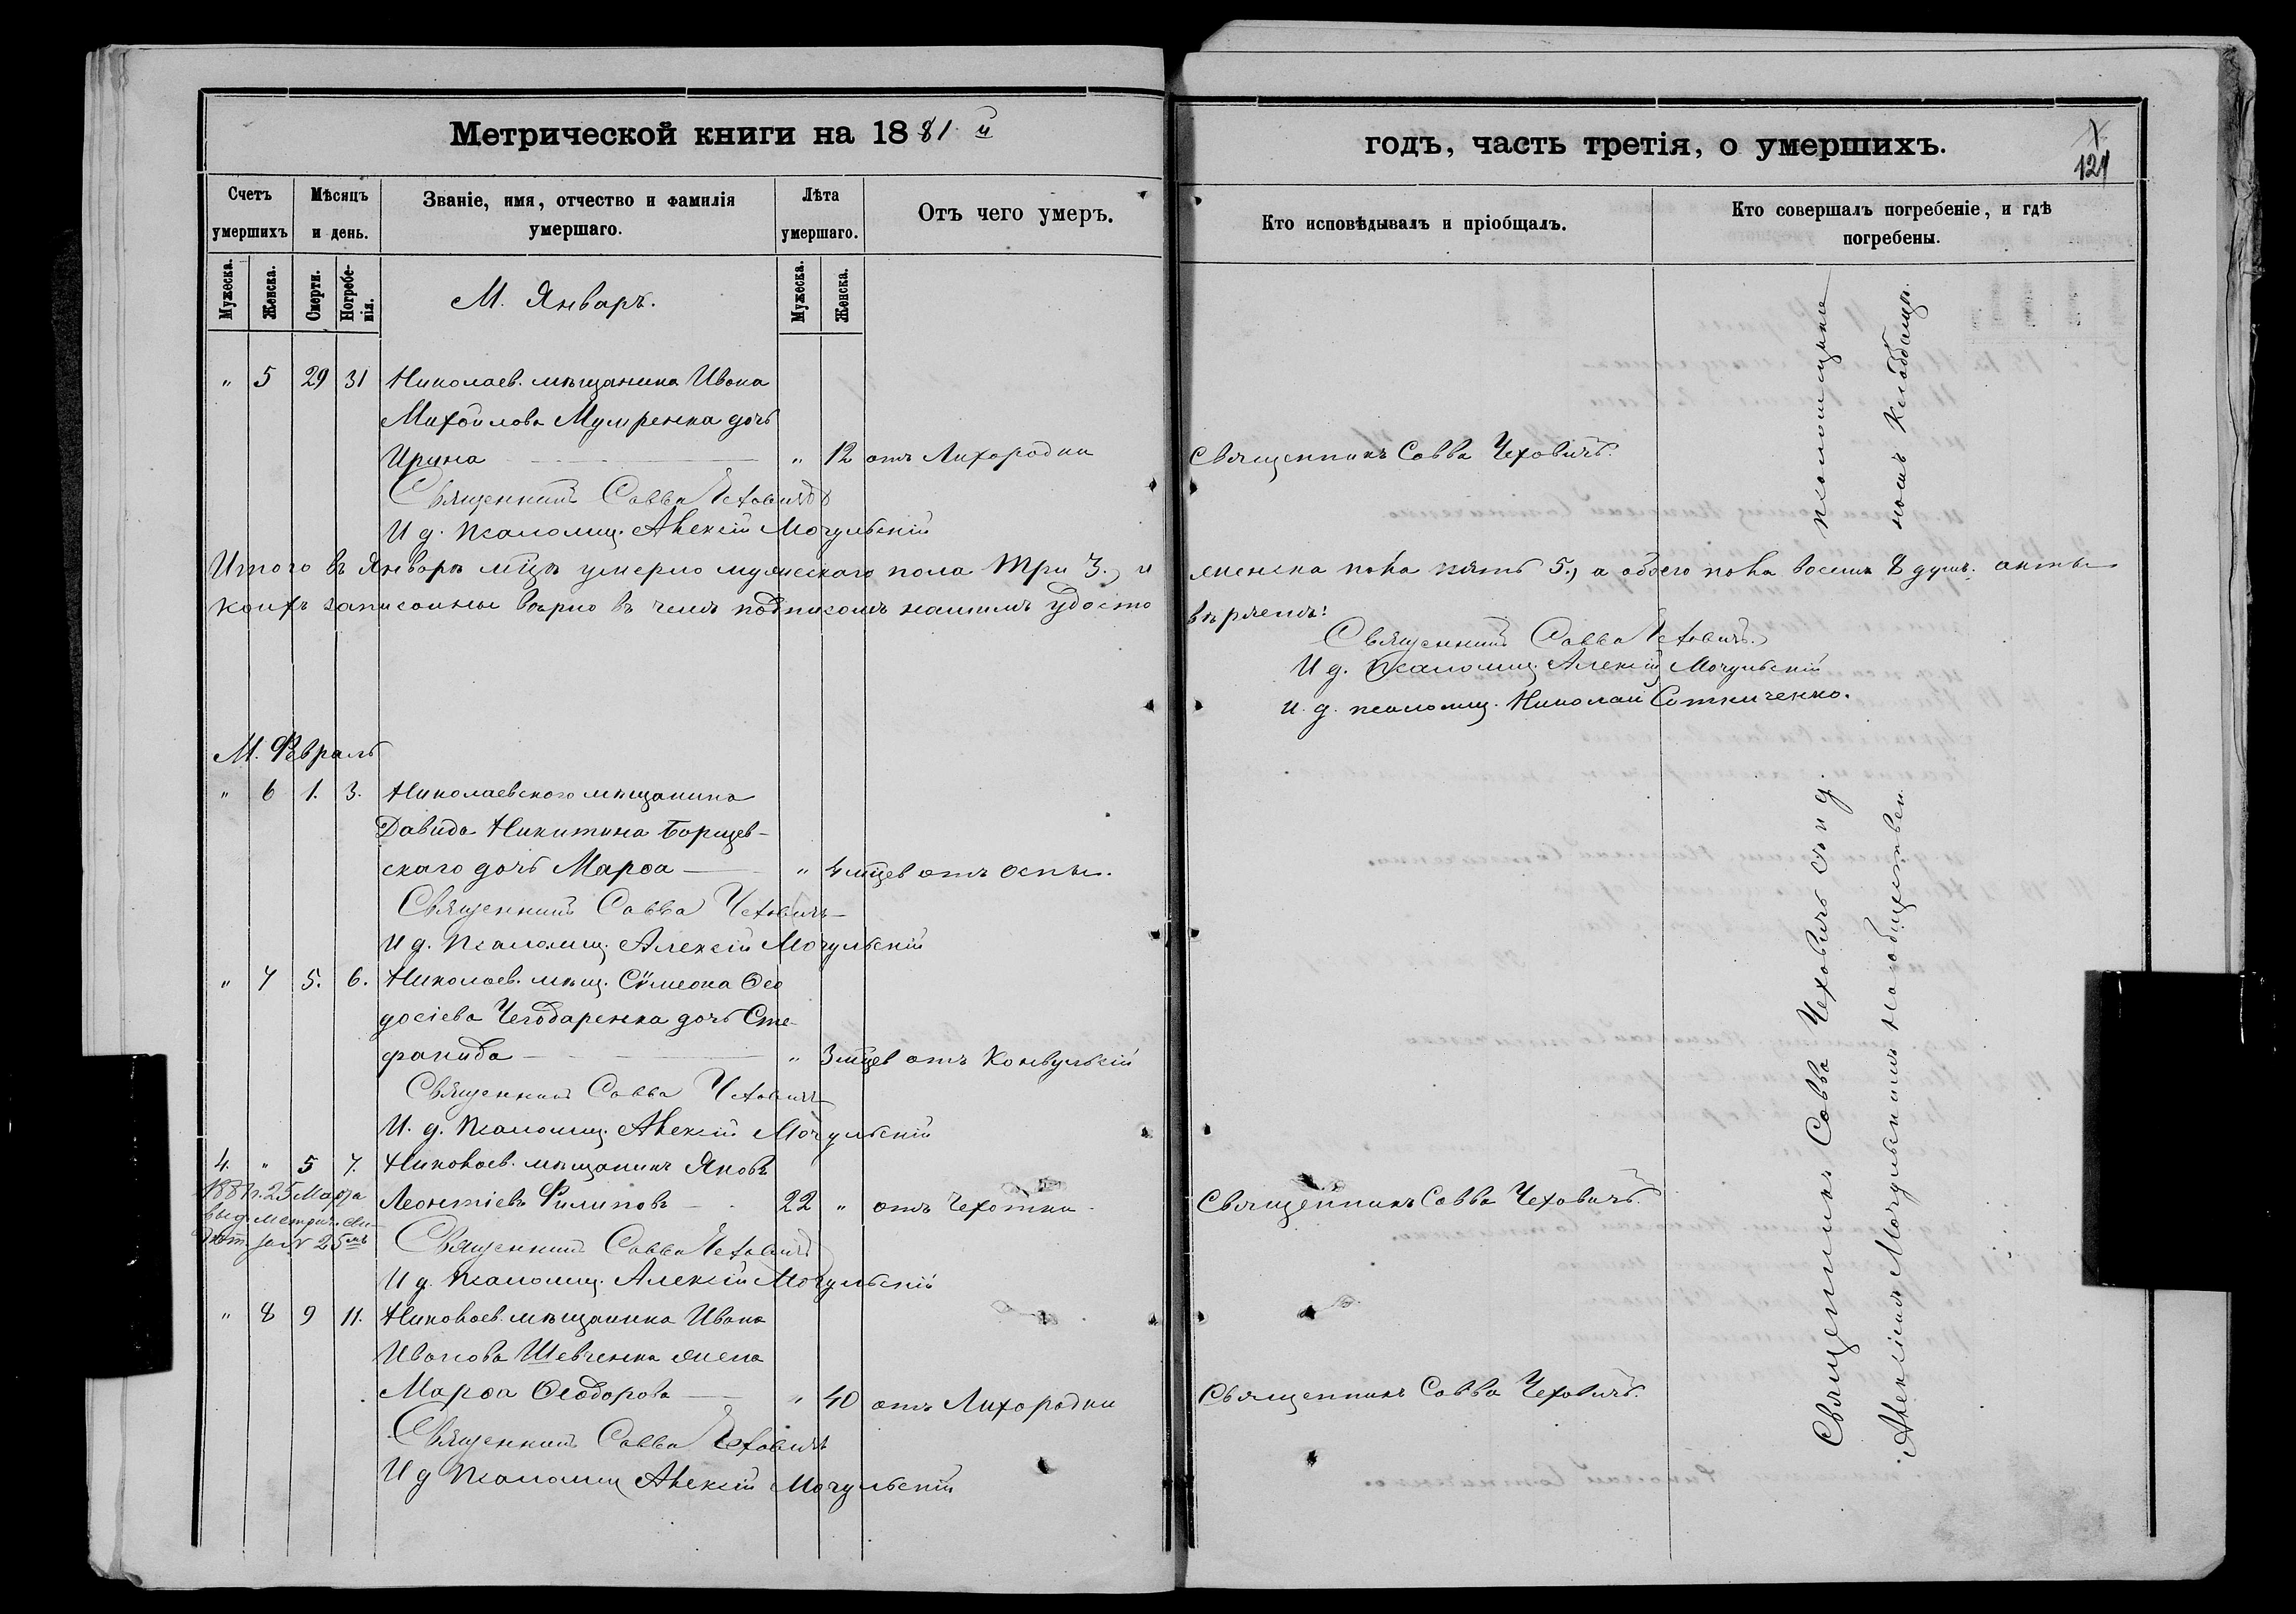 Метрической книги на 1881 й
годъ, часть третія, о умершихъ.
121
Счетъ умершихъ
Мѣсяцъ и день.
Званіе, имя, отчество и фамилія умершаго.
Лѣта умершаго.
Отъ чего умеръ.
Кто исповѣдывалъ и пріобщалъ.
Кто совершалъ погребеніе, и гдѣ погребены.
Мужеска.
Женска.
Смерти.
Погребенія.
Мужеска.
Женска.
М. Январь.
" 5 29 31 Николаев. мѣщанина Ивана
Михайлова Мумренка дочь
Ирина " 12 отъ Лихорадки Священникъ Савва Чеховичъ.
Священникъ Савва Чеховичъ
И д. Псаломщ. Алексій Мочульскій
Итого въ Январѣ мцѣ умерло мужескаго пола три 3., и женска пола пять 5., а обоего пола восемь 8 душъ. акты
коихъ записаны вѣрно въ чемъ подписомъ нашимъ удосто
вѣряемъ:
Священникъ Савва Чеховичъ.
И д. Псаломщ. Алексій Мочульскій
И. д. псаломщ. Николай Сотниченко.
М. Февраль
" 6 1. 3. Николаевского мѣщанина
Давида Никитина Борщев-
скаго дочь Марѳа " 4 мцев отъ оспы.
Священникъ Савва Чеховичъ
И д. Псаломщ. Алексій Мочульскій
" 7 5. 6. Николаев. мѣщ. Сѵмеона Ѳео
досіева Чегодаренка дочь Сте-
фанида " 3 мцев отъ Конвульсій
Священникъ Савва Чеховичъ
И. д. Псаломщ. Алексій Мочульскій
4. " 5 7. Николаев. мѣщанинъ Яковъ
Леонтіевъ Филиповъ 22 " отъ Чехотки Священникъ Савва Чеховичъ.
25 Марта
выд. метрич.
за № 25мъ
Священникъ Савва Чеховичъ
И д. Псаломщ. Алексій Мочульскій
" 8 9 11. Николаев. мѣщанина Ивана
Иванова Шевченка жена
Марѳа Ѳеодорова " 40 отъ Лихорадки Священникъ Савва Чеховичъ.
Священникъ Савва Чеховичъ
И д Псаломщ Алексій Мочульскій
Священникъ Савва Чеховичъ съ и д. псаломщика
Алексіемъ Мочульскимъ на общественномъ Кладбищѣ.